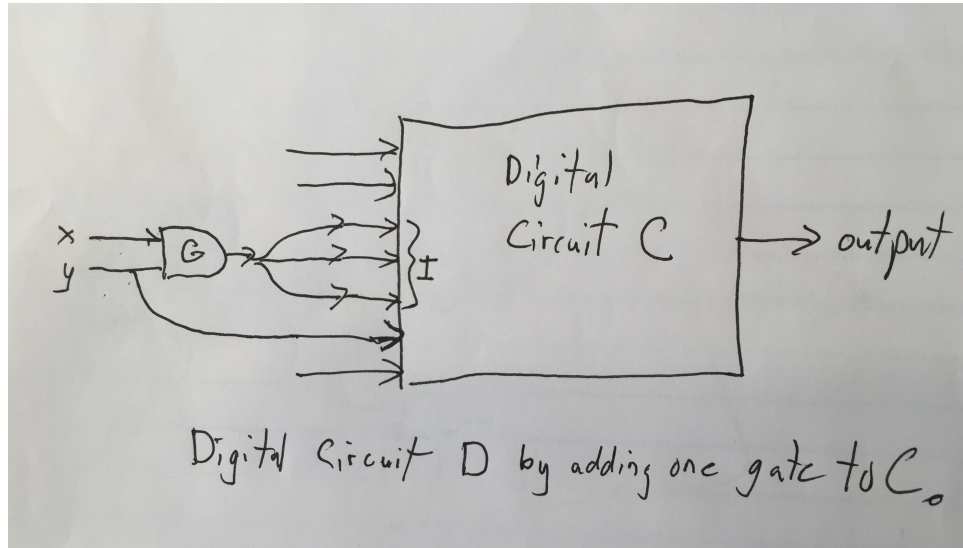 Digital
Circuit C
x
G
y
I
output
Digital Circuit D by adding one gate to C.